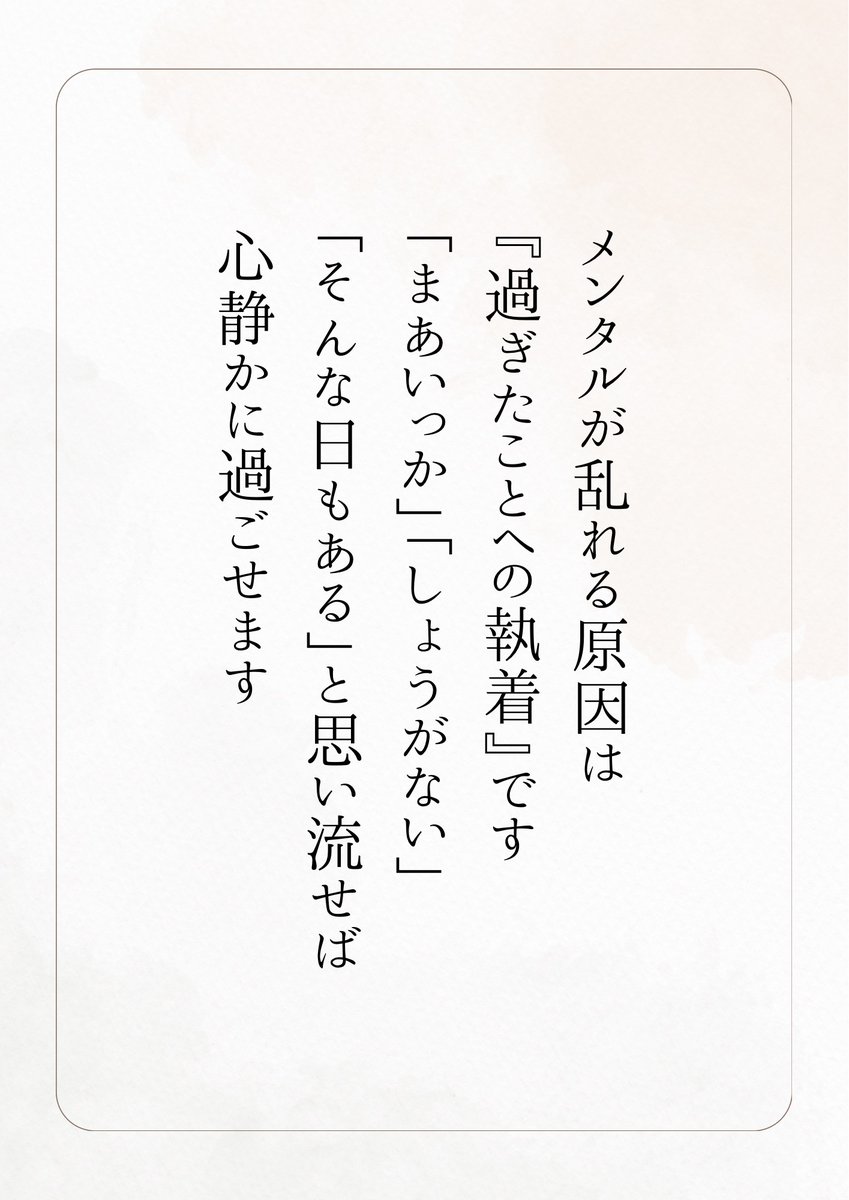 メンタルが乱れる原因は
『過ぎたことへの執着』です
「まあいっか」「しょうがない」
「そんな日もある」と思い流せば
心静かに過ごせます